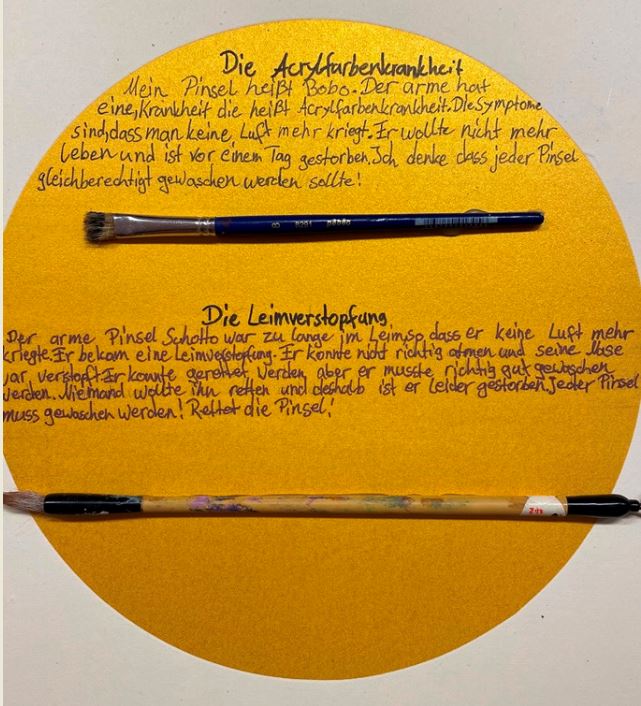 Die Acrylfarbenkrankheit
Mein Pinsel heißt Bobo. Der arme hat
eine, Krankheit die heißt Acrylfarbenkrankheit. Die Symptome
sind, dass man keine Luft mehr kriegt. Er wollte nicht mehr
leben und ist vor einem Tag gestorben. Ich denke dass jeder Pinsel
gleichberechtigt gewaschen werden sollte!
8 9201 pébéo
Die Leimverstopfung
Der arme Pinsel Schotto war zu lange im Leim, so dass er keine Luft mehr
kriegte. Er bekam eine Leimverstopfung. Er konnte nicht richtig atmen und seine Nase
war verstopft. Er konnte gerettet werden, aber er musste richtig gut gewaschen
werden. Niemand wollte ihn retten und deshalb ist er leider gestorben. Jeder Pinsel
muss gewaschen werden! Rettet die Pinsel!